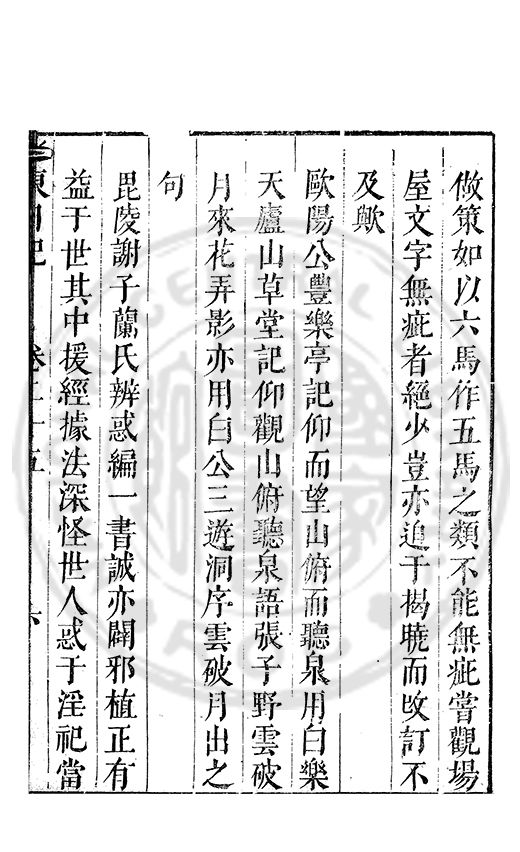 做策如以六馬作五馬之類不能無疵嘗觀場
屋文字無疵者絕少豈亦迫于揭曉而攺訂不
及歟
歐陽公豐樂亭記仰而望山俯而聽泉用白樂
天廬山草堂記仰觀山俯聽泉語張子野雲破
月來花弄影亦用白公三遊洞序雲破月出之
句
毘陵謝子蘭氏辨惑編一書誠亦闢邪植正有
益于世其中援經據法深怪世人惑于淫祀當
卷二十五
六